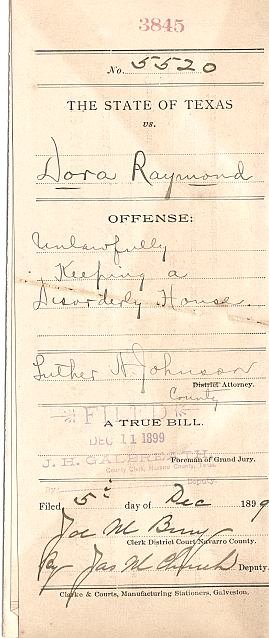 3845
No. 5520
THE STATE OF TEXAS
vs.
Dora Raymond
OFFENSE:
Unlawfully
Keeping a
Disorderly House.
Luther A. Johnson
District Attorney.
County
FILED
A TRUE BILL.
DEC 11 1899
J. H. GALBREATH,
Foreman of Grand Jury.
County Clerk, Navarro County, Texas.
By Deputy.
Filed 5 day of Dec 1899
Joe M
Clerk District Court Navarro County.
By Jas M Deputy.
Clarke & Courts, Manufacturing Stationers, Galveston.